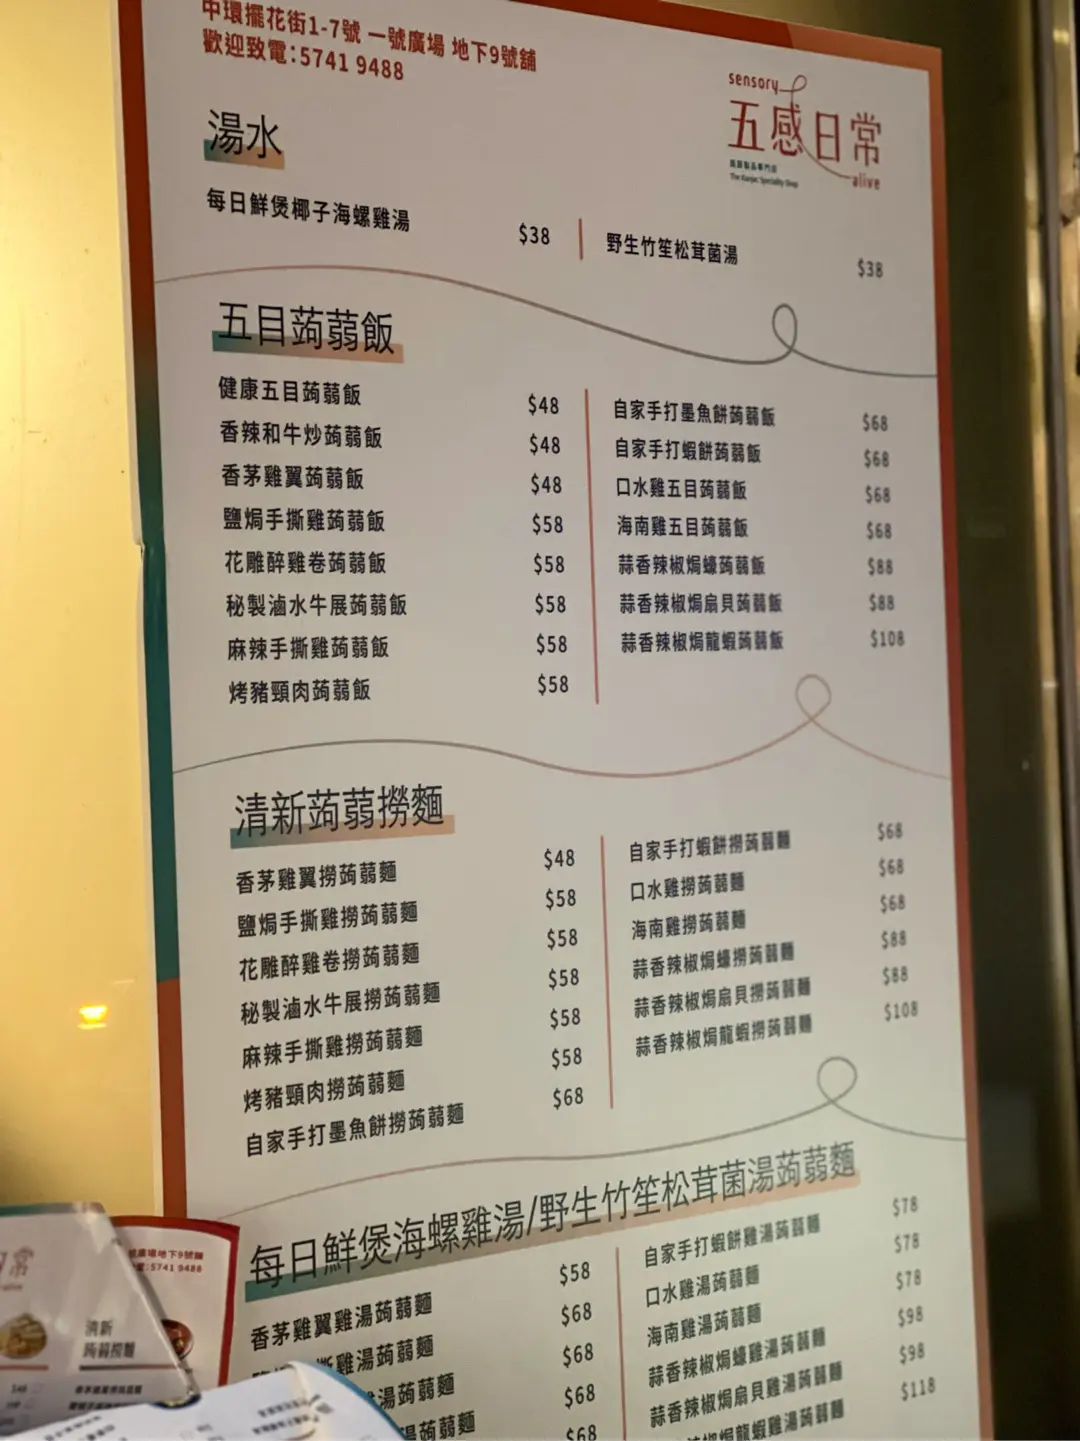 中環擺花街1-7號 一號廣場 地下9號舖
歡迎致電:5741 9488
sensory
五感日常
alive
The Konjac Speciality Shop
湯水
每日鮮煲椰子海螺雞湯 $38
野生竹笙松茸菌湯 $38
五目蒟蒻飯
健康五目蒟蒻飯 $48
香辣和牛炒蒟蒻飯 $48
香茅雞翼蒟蒻飯 $48
鹽焗手撕雞蒟蒻飯 $58
花雕醉雞卷蒟蒻飯 $58
秘製滷水牛展蒟蒻飯 $58
麻辣手撕雞蒟蒻飯 $58
烤豬頸肉蒟蒻飯 $58
自家手打墨魚餅蒟蒻飯 $68
自家手打蝦餅蒟蒻飯 $68
口水雞五目蒟蒻飯 $68
海南雞五目蒟蒻飯 $68
蒜香辣椒焗蠔蒟蒻飯 $88
蒜香辣椒焗扇貝蒟蒻飯 $88
蒜香辣椒焗龍蝦蒟蒻飯 $108
清新蒟蒻撈麵
香茅雞翼撈蒟蒻麵 $48
鹽焗手撕雞撈蒟蒻麵 $58
花雕醉雞卷撈蒟蒻麵 $58
秘製滷水牛展撈蒟蒻麵 $58
麻辣手撕雞撈蒟蒻麵 $58
烤豬頸肉撈蒟蒻麵 $58
自家手打墨魚餅撈蒟蒻麵 $68
自家手打蝦餅撈蒟蒻麵 $68
口水雞撈蒟蒻麵 $68
海南雞撈蒟蒻麵 $68
蒜香辣椒焗蠔撈蒟蒻麵 $88
蒜香辣椒焗扇貝撈蒟蒻麵 $88
蒜香辣椒焗龍蝦撈蒟蒻麵 $108
每日鮮煲海螺雞湯/野生竹笙松茸菌湯蒟蒻麵
香茅雞翼雞湯蒟蒻麵 $58
撕雞湯蒟蒻麵 $68
湯蒟蒻麵 $68
湯蒟蒻麵 $68
$68
自家手打蝦餅雞湯蒟蒻麵 $78
口水雞湯蒟蒻麵 $78
海南雞湯蒟蒻麵 $78
蒜香辣椒焗蠔雞湯蒟蒻麵 $98
蒜香辣椒焗扇貝雞湯蒟蒻麵 $98
辣椒焗龍蝦雞湯蒟蒻麵 $118
廣場地下9號舖
:5741 9488
清新
蒟蒻撈麵